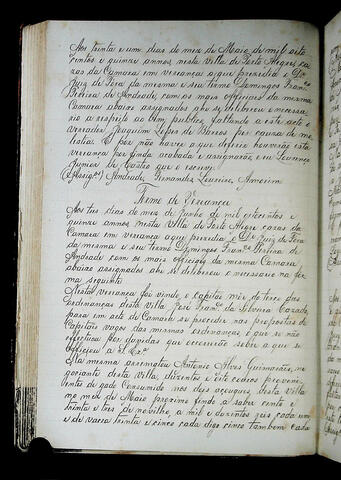 Aos trinta e um dias do mez de Maio de mil oito
centos e quinze annos, nesta Villa de Porto Alegre, ca
zas da Camara em vereança a que prezedio o Dr.
Juiz de Fora da mesma e seu termo Domingos Franco
Pereira de Andrade, com os mais officiaes da mesma
Camara abaixo assignados ahi se deliberou o necessa
rio a respeito ao bem publico, faltando a este acto o
vereador Joaquim Lopes de Barros por cauza de mo
lestia. E por não haver a que deferir houverão esta
vereança por finda acabada e assignarão, e eu Lourenço
Junior de Castro que o escrevi.
(Assig.) Andrade, Fernandes, Loureiro, Amorim
Termo de Vereança
Aos tres dias do mez de Junho de mil oitocentos e
quinze annos nesta Villa de Porto Alegre cazas da
Camara em vereança aqui prezedio o Dr. Juiz de Fora
da mesma e seu termo Domingos Franco Pereira de
Andrade com os mais officiaes da mesma Camara
abaixo assignados ahi se deliberou o necessario na for
ma seguinte
Nesta vereança foi vindo o capitão mór do terço das
ordenanças desta villa José Fran. da Silveira Cazado
para em acto de Camara se proceder nas propostas de
Capitães vagos das mesmas ordenanças, o que se não
effectuou por duvidas que occorrerão sobre a que se
officiou a S. Ex.
Na mesma arrematou Antonio Alves Guimarães, ne
gociante desta Villa, duzentos e oito couros proveni
entes de gado Consumido nos dois açougues desta Villa
no mez de Maio proximo findo a saber cento e
trinta e tres de novilho, a mil e duzentos reis cada um
e de vacca trinta e cinco cada digo cinco tambem cada